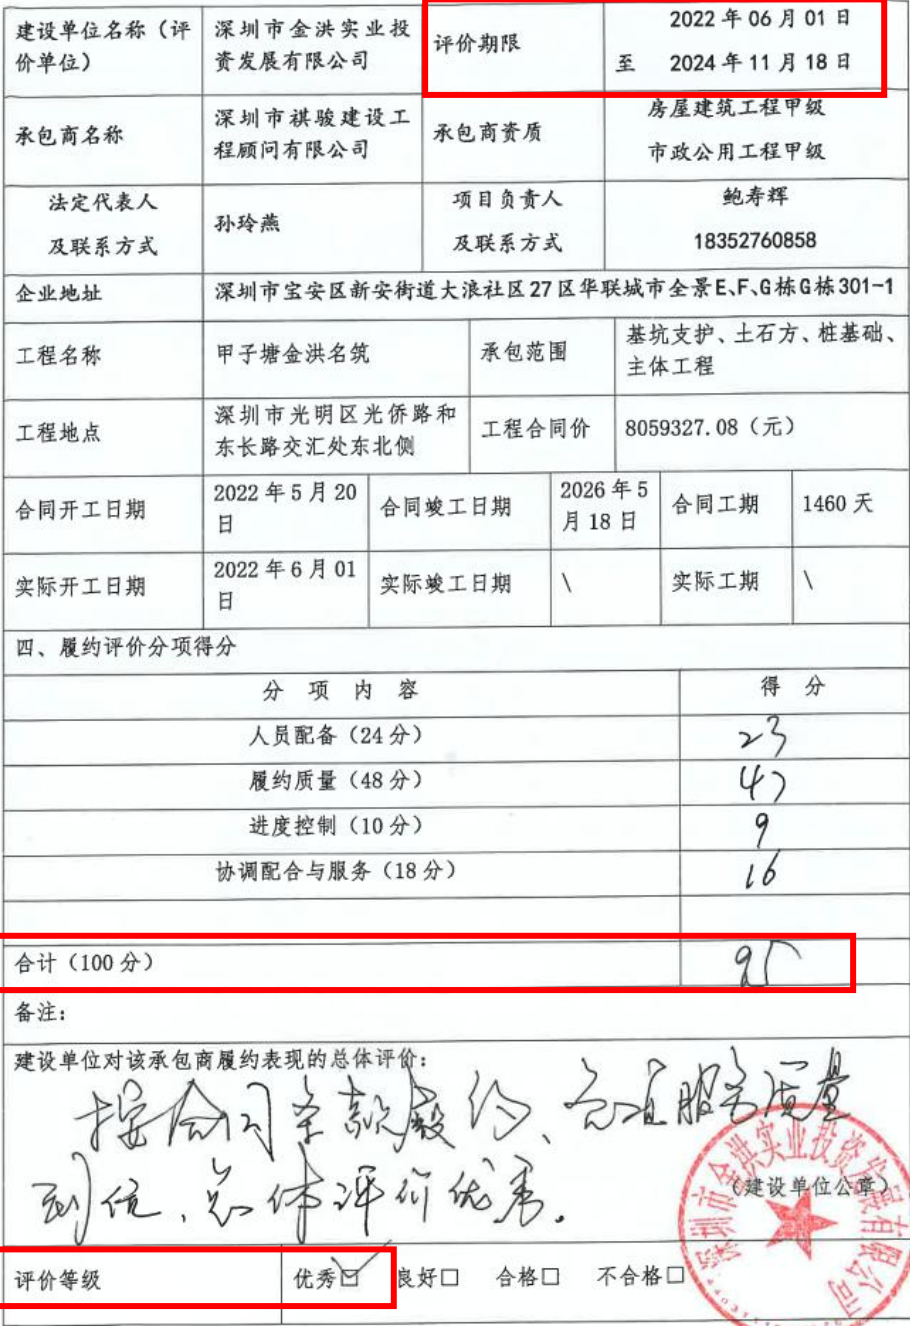 建设单位名称（评
价单位）
深圳市金洪实业投
资发展有限公司
评价期限
2022年06月01日
至 2024年11月18日
承包商名称
深圳市祺骏建设工
程顾问有限公司
承包商资质
房屋建筑工程甲级
市政公用工程甲级
法定代表人
及联系方式
孙玲燕
项目负责人
及联系方式
鲍寿辉
18352760858
企业地址
深圳市宝安区新安街道大浪社区27区华联城市全景E、F、G栋G栋301-1
工程名称
甲子塘金洪名筑
承包范围
基坑支护、土石方、桩基础、
主体工程
工程地点
深圳市光明区光侨路和
东长路交汇处东北侧
工程合同价
8059327.08（元）
合同开工日期
2022年5月20
日
合同竣工日期
2026年5
月18日
合同工期
1460天
实际开工日期
2022年6月01
日
实际竣工日期
\
实际工期
\
四、履约评价分项得分
分 项 内 容
得 分
人员配备（24分）
23
履约质量（48分）
47
进度控制（10分）
9
协调配合与服务（18分）
16
合计（100分）
95
备注：
建设单位对该承包商履约表现的总体评价：
按合同条款履约、服务质量
到位、总体评价优秀。
（建设单位公章）
深圳市金洪实业投资发展有限公司
评价等级
优秀☑ 良好□ 合格□ 不合格□